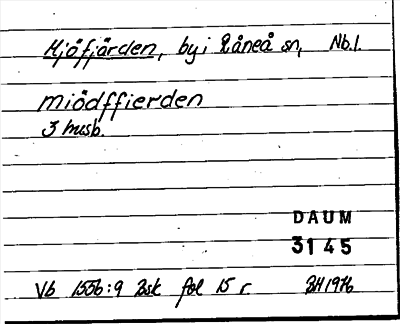 Mjöfjärden, by i Råneå sn, Nb.l.
miödffierden
3 husb.
DAUM
3145
Vb 1556:9 Bsk fol 15 r BH 1976